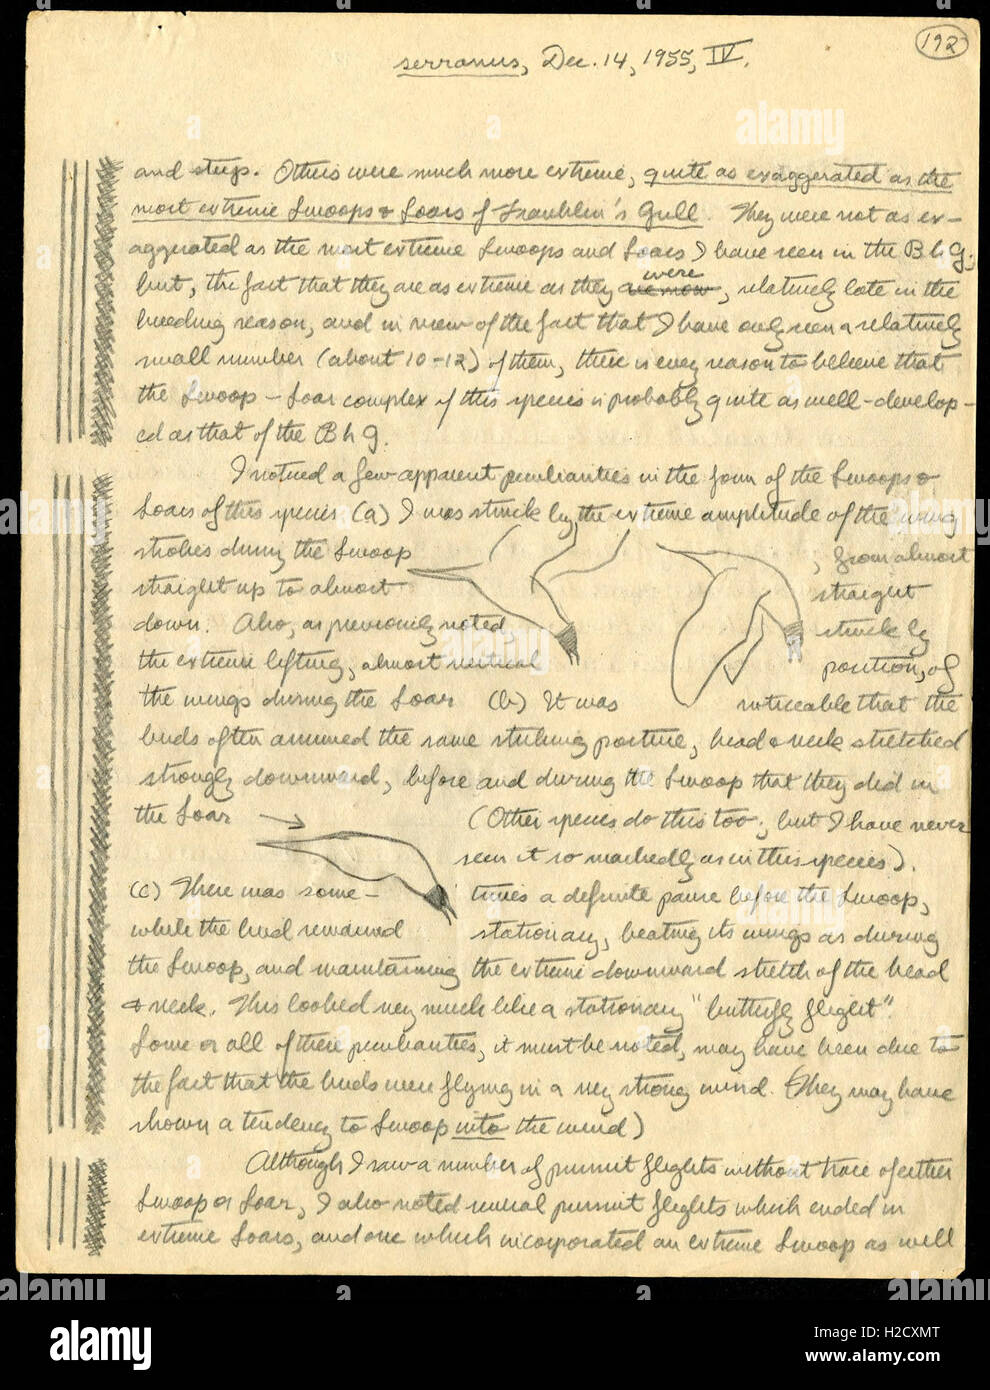 192
serranus, Dec. 14, 1955, IV.
and steep. Others were much more extreme, quite as exaggerated as the
most extreme Swoops & Soars of Franklin's Gull. They were not as ex-
aggerated as the most extreme Swoops and Soars I have seen in the B h G;
but, the fact that they are as extreme as they are now were, relatively late in the
breeding season, and in view of the fact that I have only seen a relatively
small number (about 10-12) of them, there is every reason to believe that
the Swoop - Soar complex of this species is probably quite as well-develop-
ed as that of the B h G.
I noticed a few apparent peculiarities in the form of the Swoops &
Soars of this species (a) I was struck by the extreme amplitude of the wing
strokes during the Swoop, from almost
straight up to almost straight
down. Also, as previously noted struck by
the extreme lifting, almost vertical position, of
the wings during the Soar (b) It was noticeable that the
birds often assumed the same striking posture, head & neck stretched
strongly downward, before and during the Swoop that they did in
the Soar (Other species do this too; but I have never
seen it so markedly as in this species).
(c) There was some- times a definite pause before the Swoop,
while the bird remained stationary, beating its wings as during
the Swoop, and maintaining the extreme downward stretch of the head
& neck. This looked very much like a stationary "butterfly flight".
Some or all of these peculiarities, it must be noted, may have been due to
the fact that the birds were flying in a very strong wind. (They may have
shown a tendency to Swoop into the wind)
Although I saw a number of pursuit flights without trace of either
Swoop or Soar, I also noted several pursuit flights which ended in
extreme Soars, and one which incorporated an extreme Swoop as well
alamy
Image ID: H2CXMT
www.alamy.com